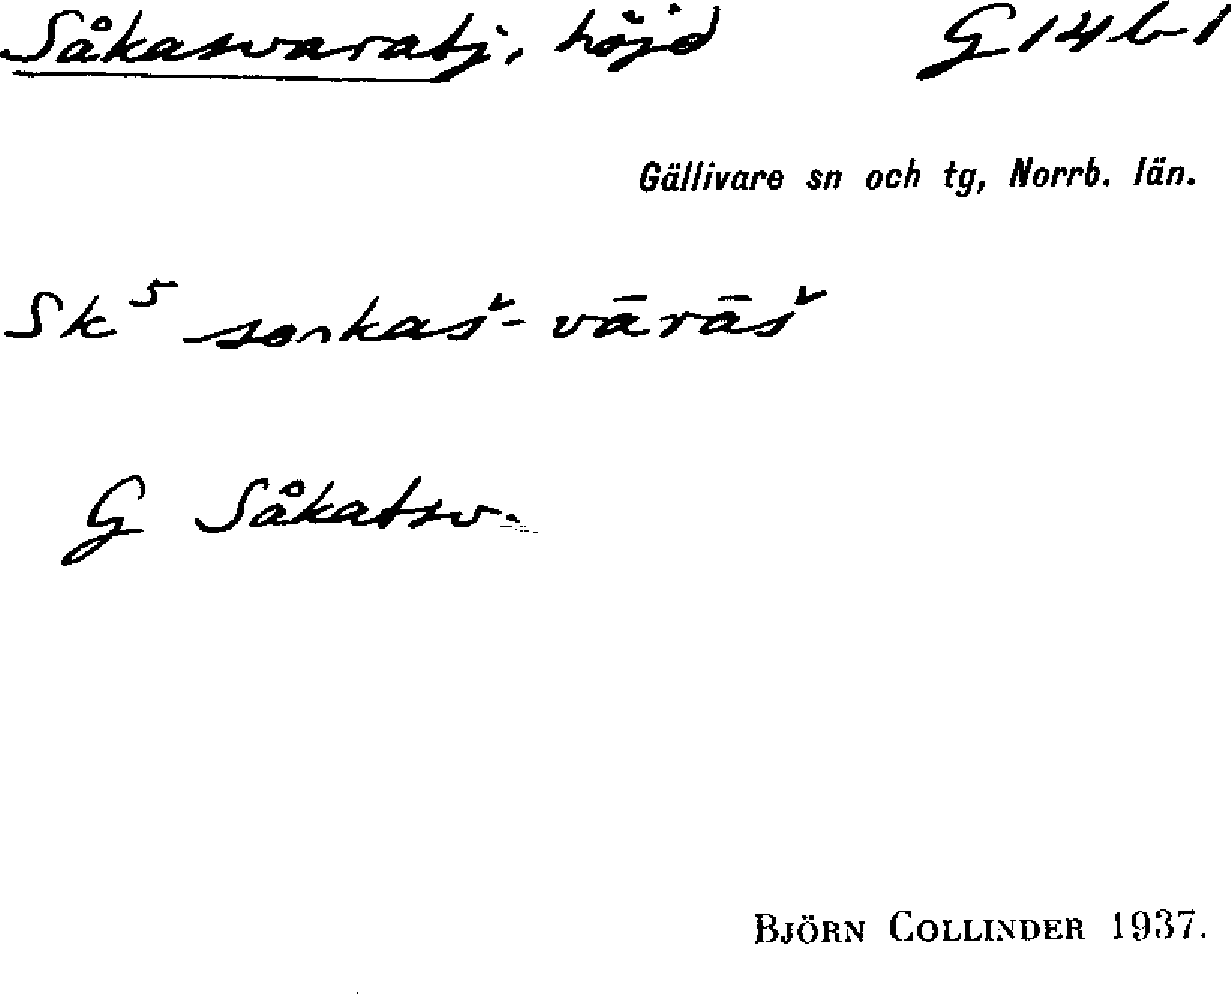 Såkasvaratj, höjd G 14 b 1
Gällivare sn och tg, Norrb. län.
Sk⁵ sonkaš-vārāš
G Såkatsv.
BJÖRN COLLINDER 1937.